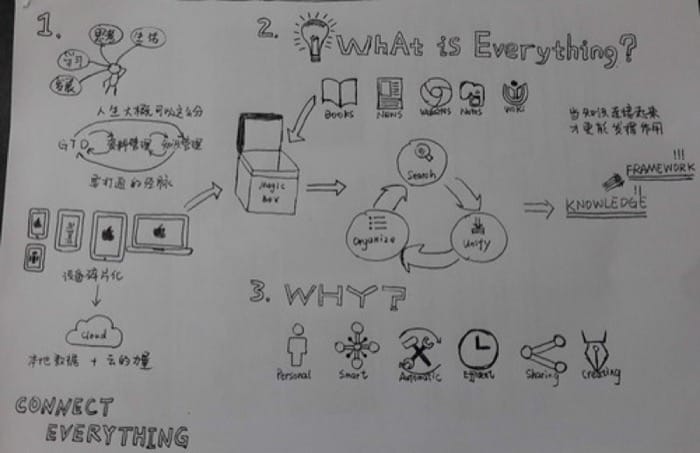 1.
思考
生活
学习
发展
人生大概可以这么分
GTD 资料管理 知识管理
要打通的经脉
设备碎片化
Cloud
本地数据 + 云的力量
CONNECT
EVERYTHING
2. WhAt is Everything?
Books News Websites Notes Wiki
Magic
Box
Search
Organize
Unify
当知识连接起来
才更能发挥作用
!!!
FRAMEWORK
!!
KNOWLEDGE
3. WHY?
Personal Smart Automatic Efficient Sharing Creating